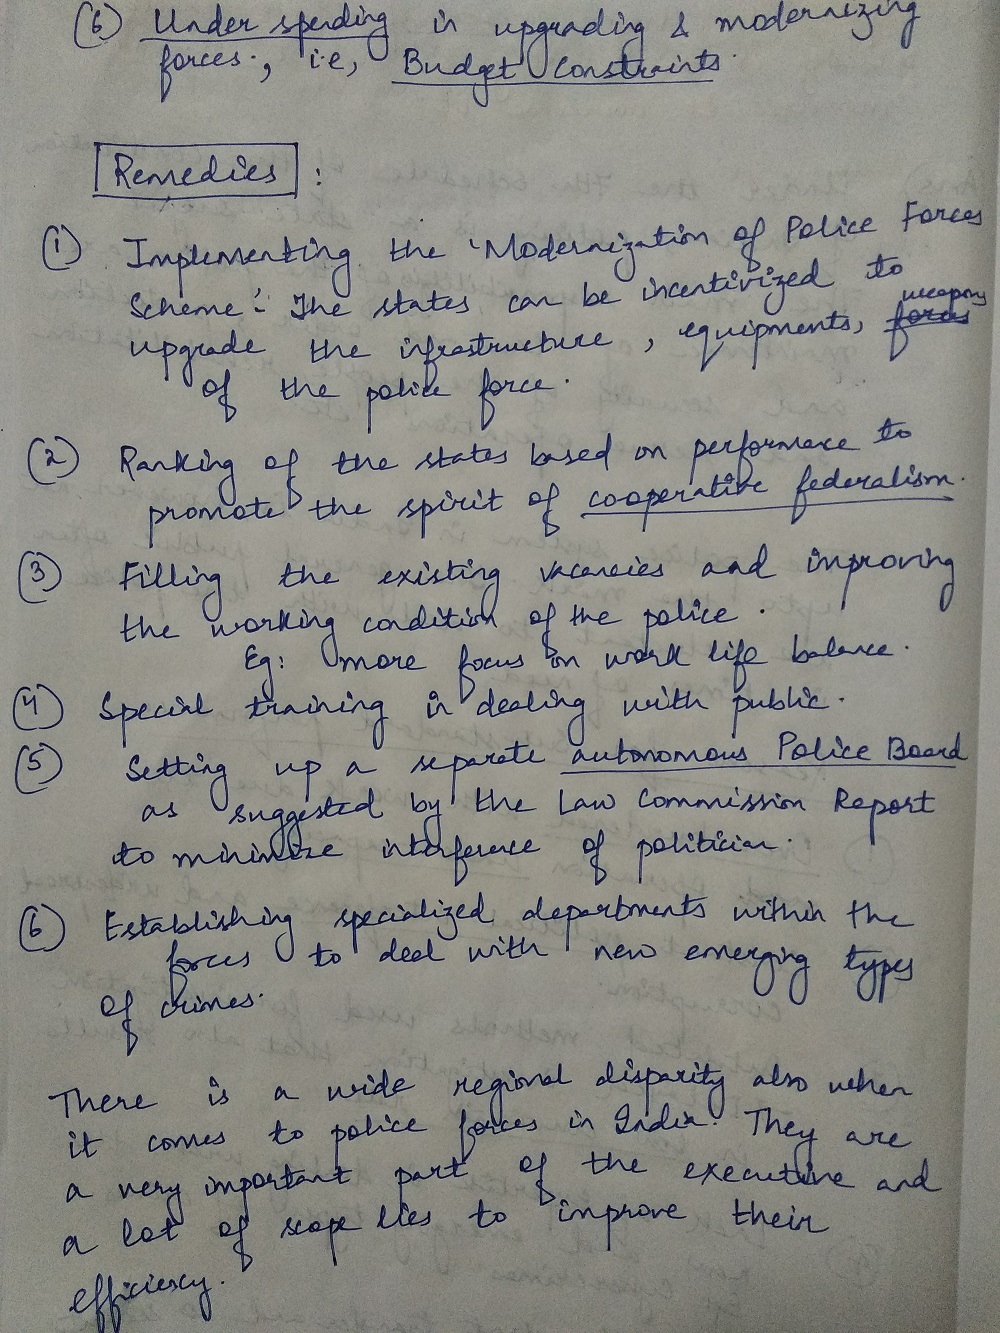 (6) Under spending in upgrading & modernizing
forces., i.e, Budget Constraints.
Remedies :
(1) Implementing the 'Modernization of Police Forces
Scheme': The states can be incentivized to
upgrade the infrastructure, equipments, forces weapons
of the police force.
(2) Ranking of the states based on performance to
promote the spirit of cooperative federalism.
(3) Filling the existing vacancies and improving
the working condition of the police.
Eg: more focus on work life balance.
(4) Special training in dealing with public.
(5) Setting up a separate autonomous Police Board
as suggested by the Law Commission Report
to minimize interference of politician.
(6) Establishing specialized departments within the
forces to deal with new emerging types
of crimes.
There is a wide regional disparity also when
it comes to police forces in India. They are
a very important part of the executive and
a lot of scope lies to improve their
efficiency.